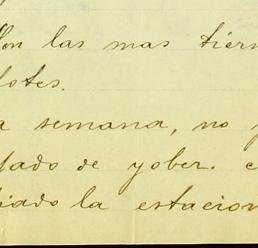 Con las mas tiern
lotes.
a semana, no
fado de yober. c
iado la estacion